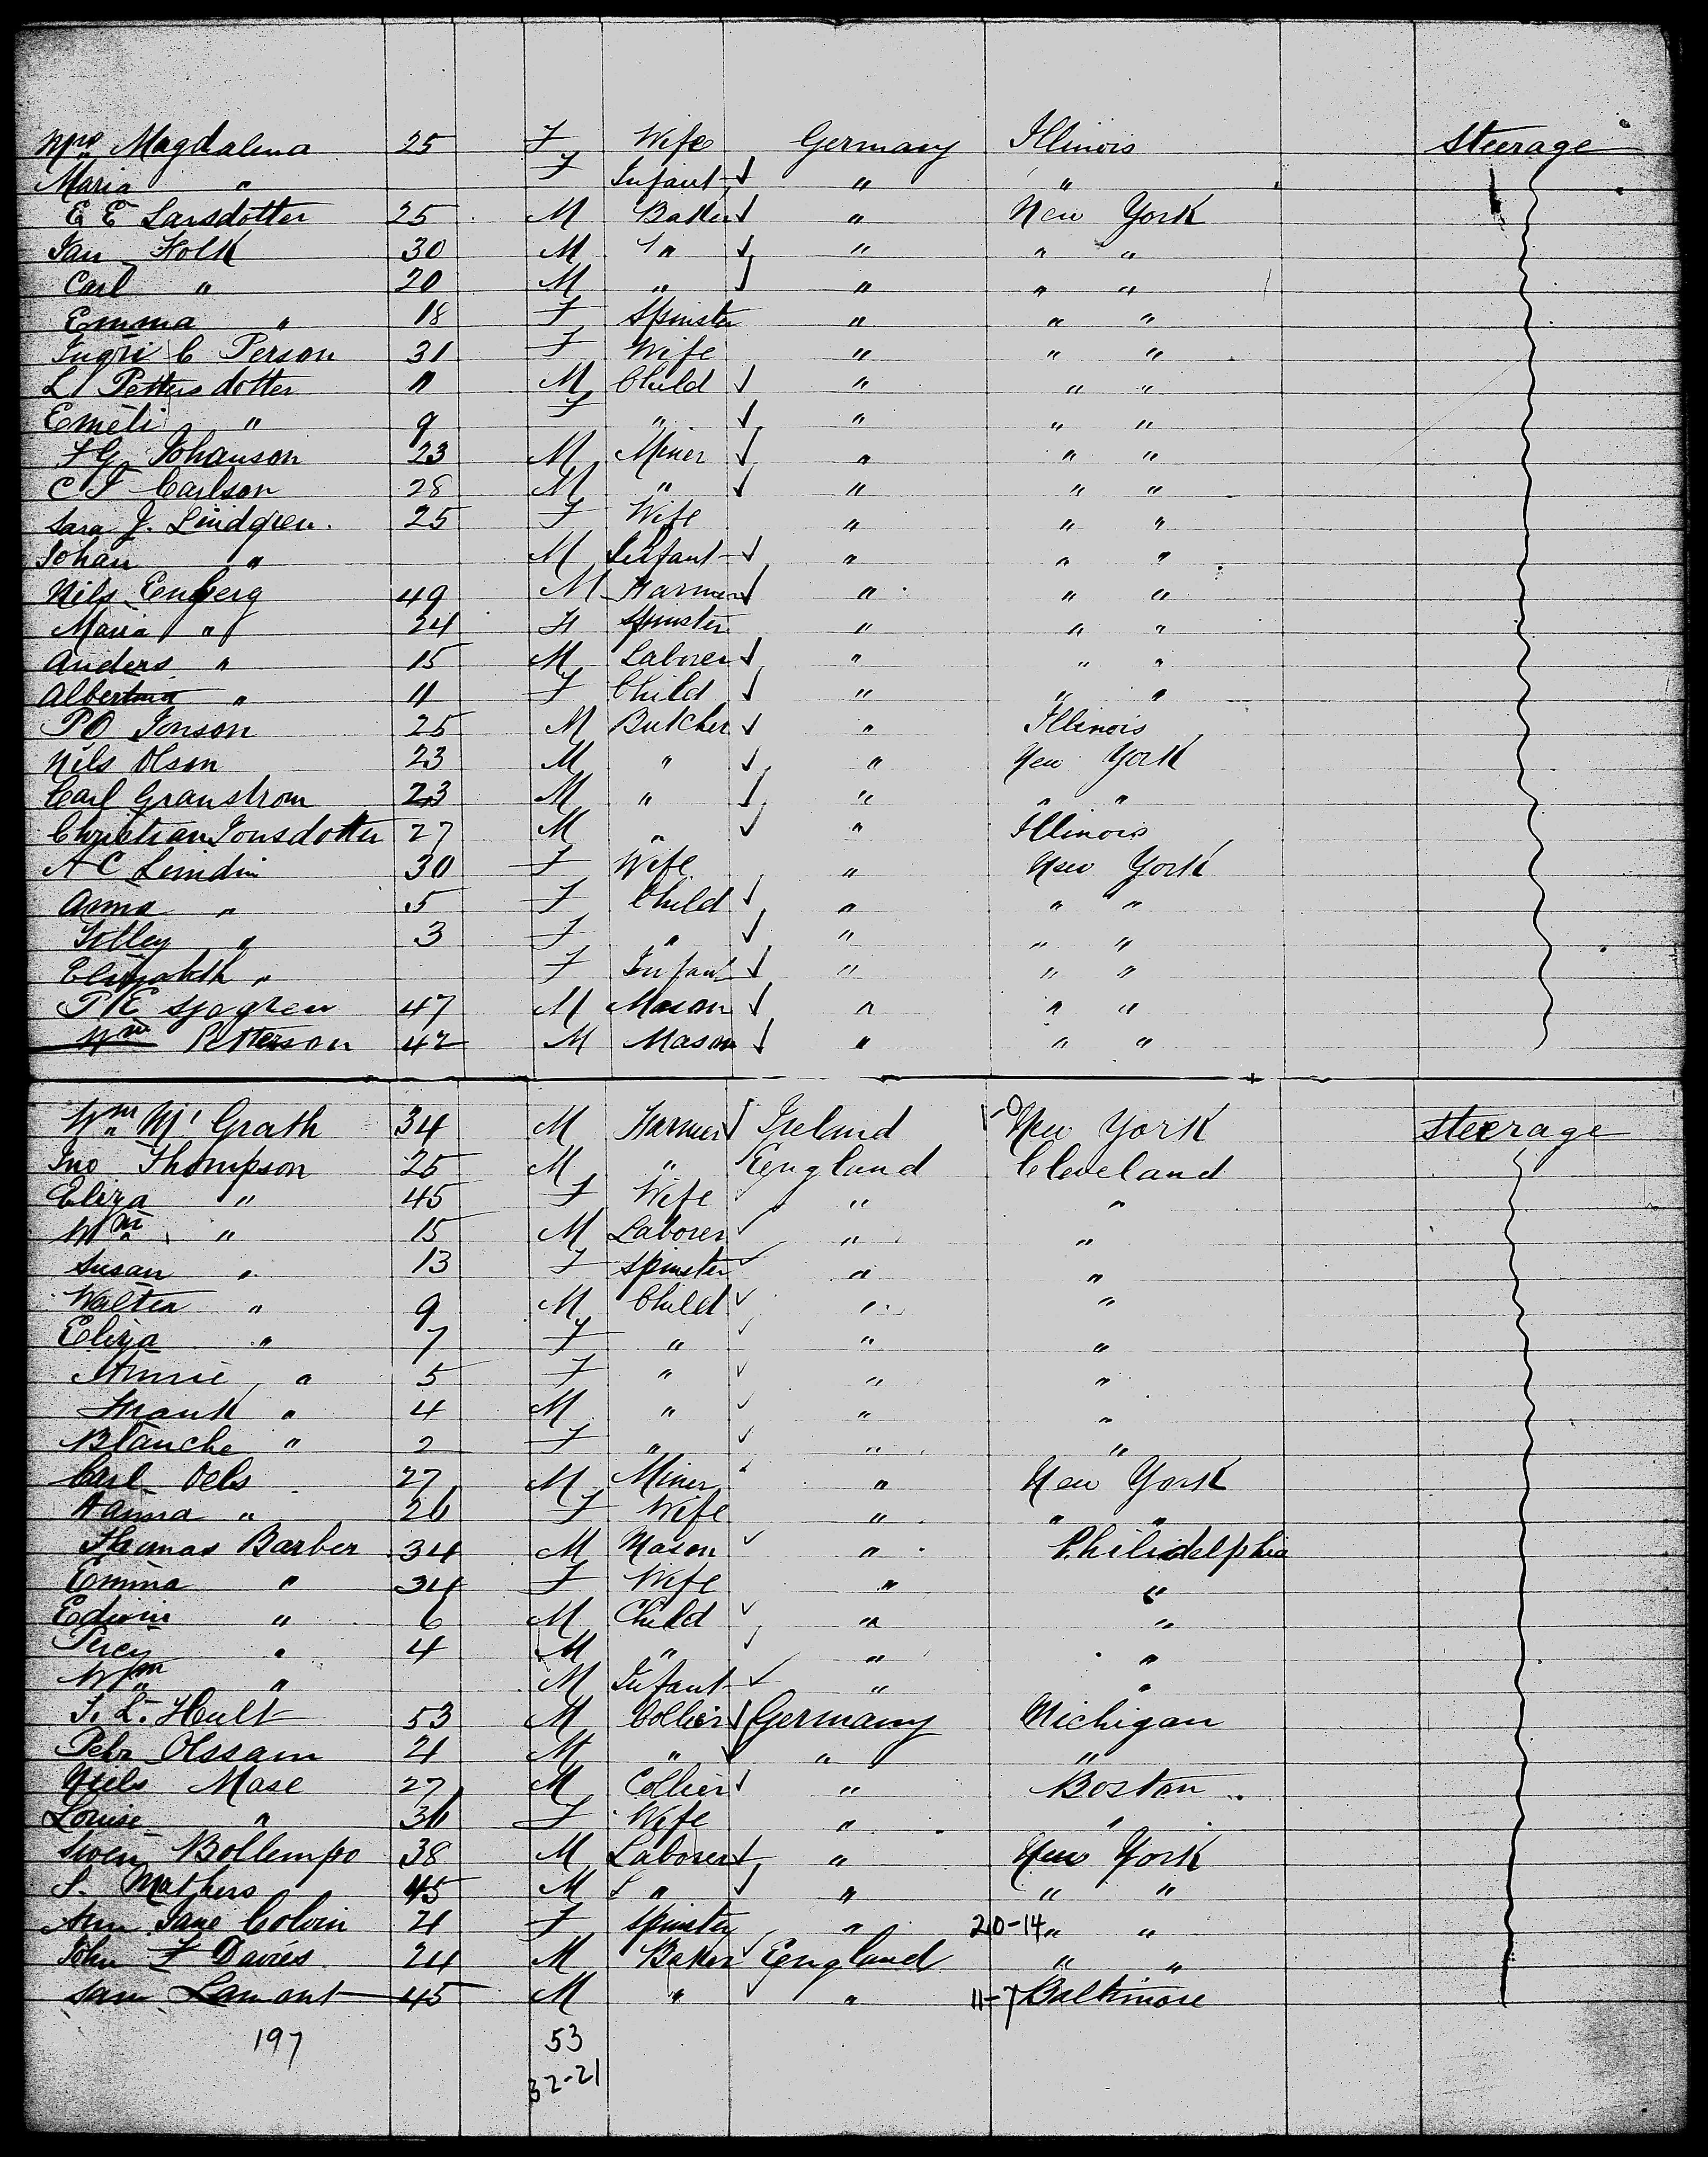 Mrs Magdalena 25 F Wife Germany Illinois Steerage
Maria " F Infant " "
E E Larsdotter 25 M Baker " New York
Jan Holk 30 M " " " "
Carl " 20 M " " " "
Emma " 18 F Spinster " " "
Ingri C Person 31 F Wife " " "
L Pettersdotter 11 M Child " " "
Emeli " 9 F " " " "
F G Johanson 23 M Miner " " "
C F Carlson 28 M " " " "
Sara J. Lindgren. 25 F Wife " " "
Johan " M Infant " " "
Nils Enberg 49 M Farmer " " "
Maria " 24 F Spinster " " "
Anders " 15 M Laborer " " "
Albertina " 11 F Child " " "
P O Jonson 25 M Butcher " Illinois
Nils Olson 23 M " " New York
Carl Granstrom 23 M " " " "
Christian Jonsdotter 27 M " " Illinois
A C Lindin 30 F Wife " New York
Anna " 5 F Child " " "
Tilley " 3 F " " " "
Elizabeth " F Infant " " "
P E Sjogren 47 M Mason " " "
Wm Petterson 42 M Mason " " "
Wm Mc Grath 34 M Farmer Irelnid New York Steerage
Jno Thompson 25 M " England Cleveland
Eliza " 45 F Wife " "
Wm " 15 M Laborer " "
Susan " 13 F Spinster " "
Walter " 9 M Child " "
Eliza " 7 F " " "
Annie " 5 F " " "
Frank " 4 M " " "
Blanche " 2 F " " "
Carl Oels 27 M Miner " New York
Hanna " 26 F Wife " " "
Thomas Barber 34 M Mason " Philidelphia
Emma " 34 F Wife " "
Edwin " 6 M Child " "
Percy " 4 M " " "
Wm " M Infant " "
S. L. Hult 53 M Collier Germany Michigan
Petr Olssam 21 M " " "
Niels Mase 27 M Collier " Boston
Louise " 30 F Wife " "
Swen Bollempo 38 M Laborer " New York
S. Mathers 45 M " " " "
Ann Jane Colvin 21 F Spinster " 20-14 " "
John F Davies 24 M Baker England " "
Sam Lamont 45 M " " 11-7 Baltimore
197 53
32-21